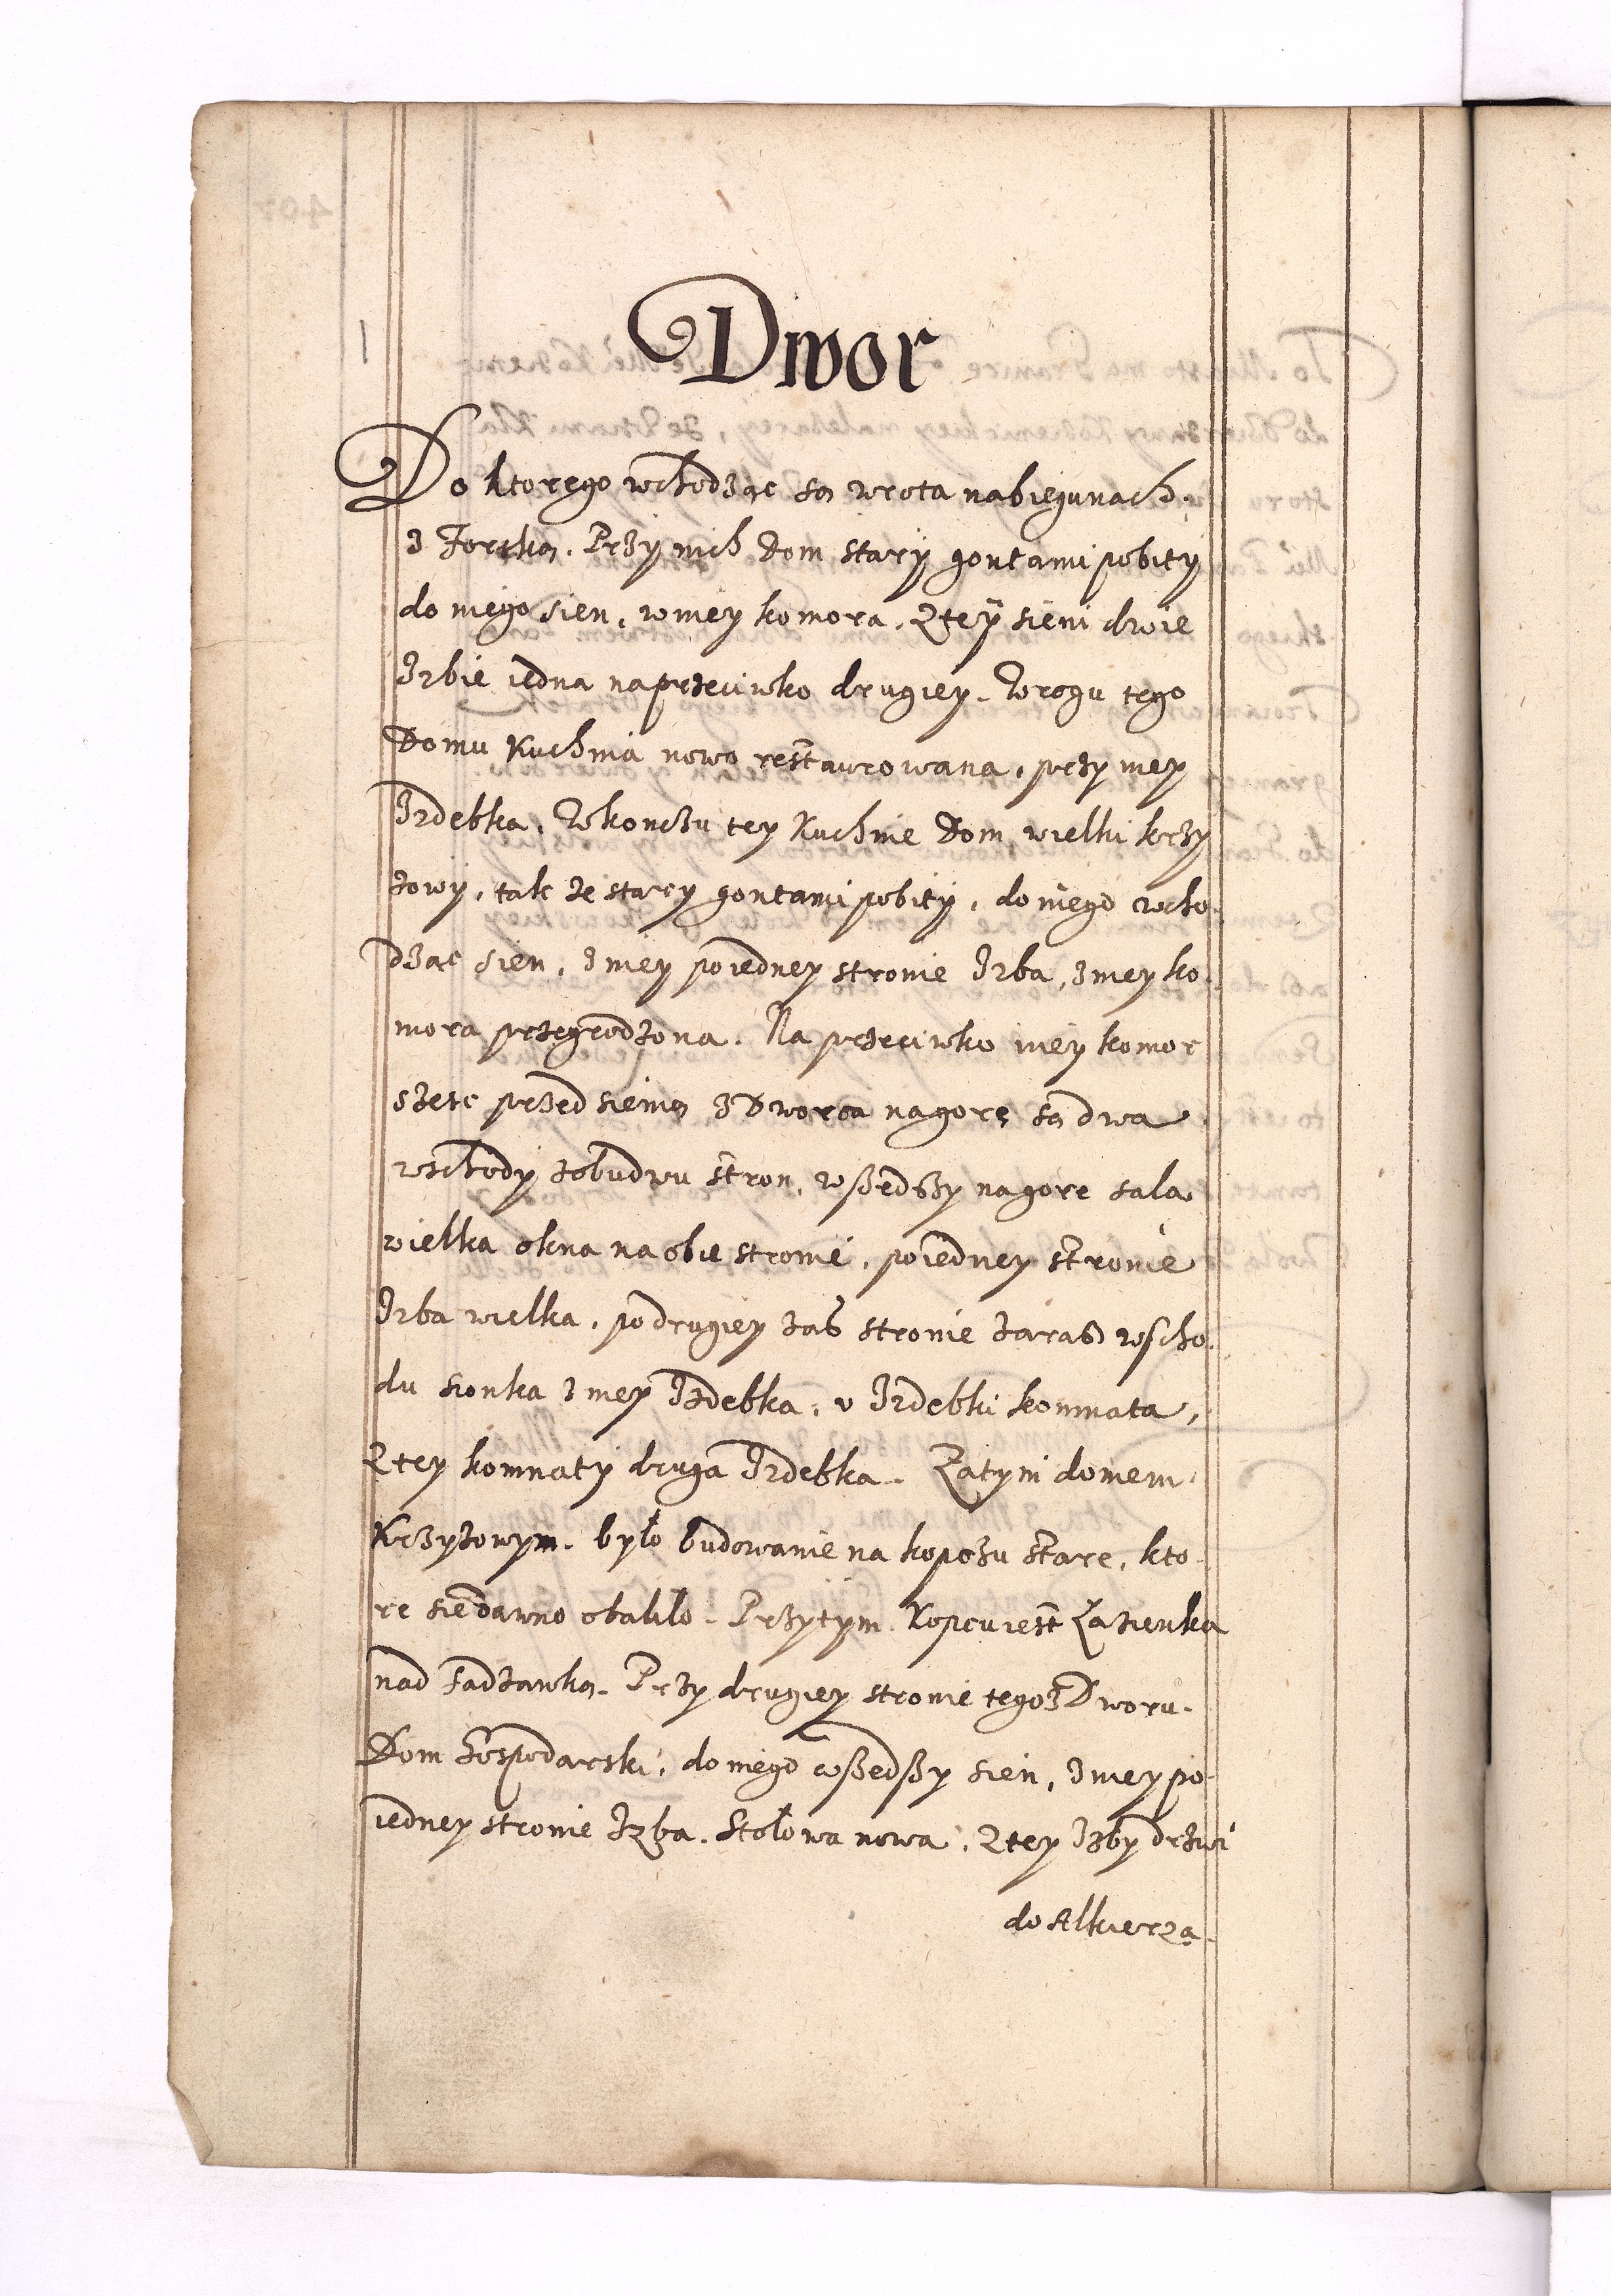 Dwor
Do ktorego wchodząc są wrota nabiegunach.
z Fortką. Przy nich Dom stary gontami pobity
do niego sien, wniey komora. Ztey sieni dwie
Izbie iedna naprzeciwko drugiey. Wrogu tego
Domu Kuchnia nowo restaurowana, przy niey
Izdebka. Wkonczu tey Kuchnie Dom wielki krzy
zowy, tak ze stary gontami pobity, do niego wcho
dząc sien, zniey poiedney stronie Izba, zniey ko
mora przegrodzona. Na przeciwko niey komor
przed sienią z Dworca nagorę są dwa
wschody zobudwu stron, wszedszy nagore sala
wielka okna na obie stronie, poiedney stronie
Izba wielka, podrugiey zas stronie zaras wscho
du sionka zniey Izdebka, v Izdebki komnata,
Ztey komnaty druga Izdebka. Zatym domem
Krzyzowym. było budowanie na kopczu stare, kto
re siedawno obalilo. Przytym Kopcu iest Łazienka
nad sadzawką. Przy drugiey stronie tegoz Dworu.
Dom Gospodarski, do niego wszedszy sien, zniey po
iedney stronie Izba. Stołowa nowa, Ztey Izby drzwi
do Alkierza